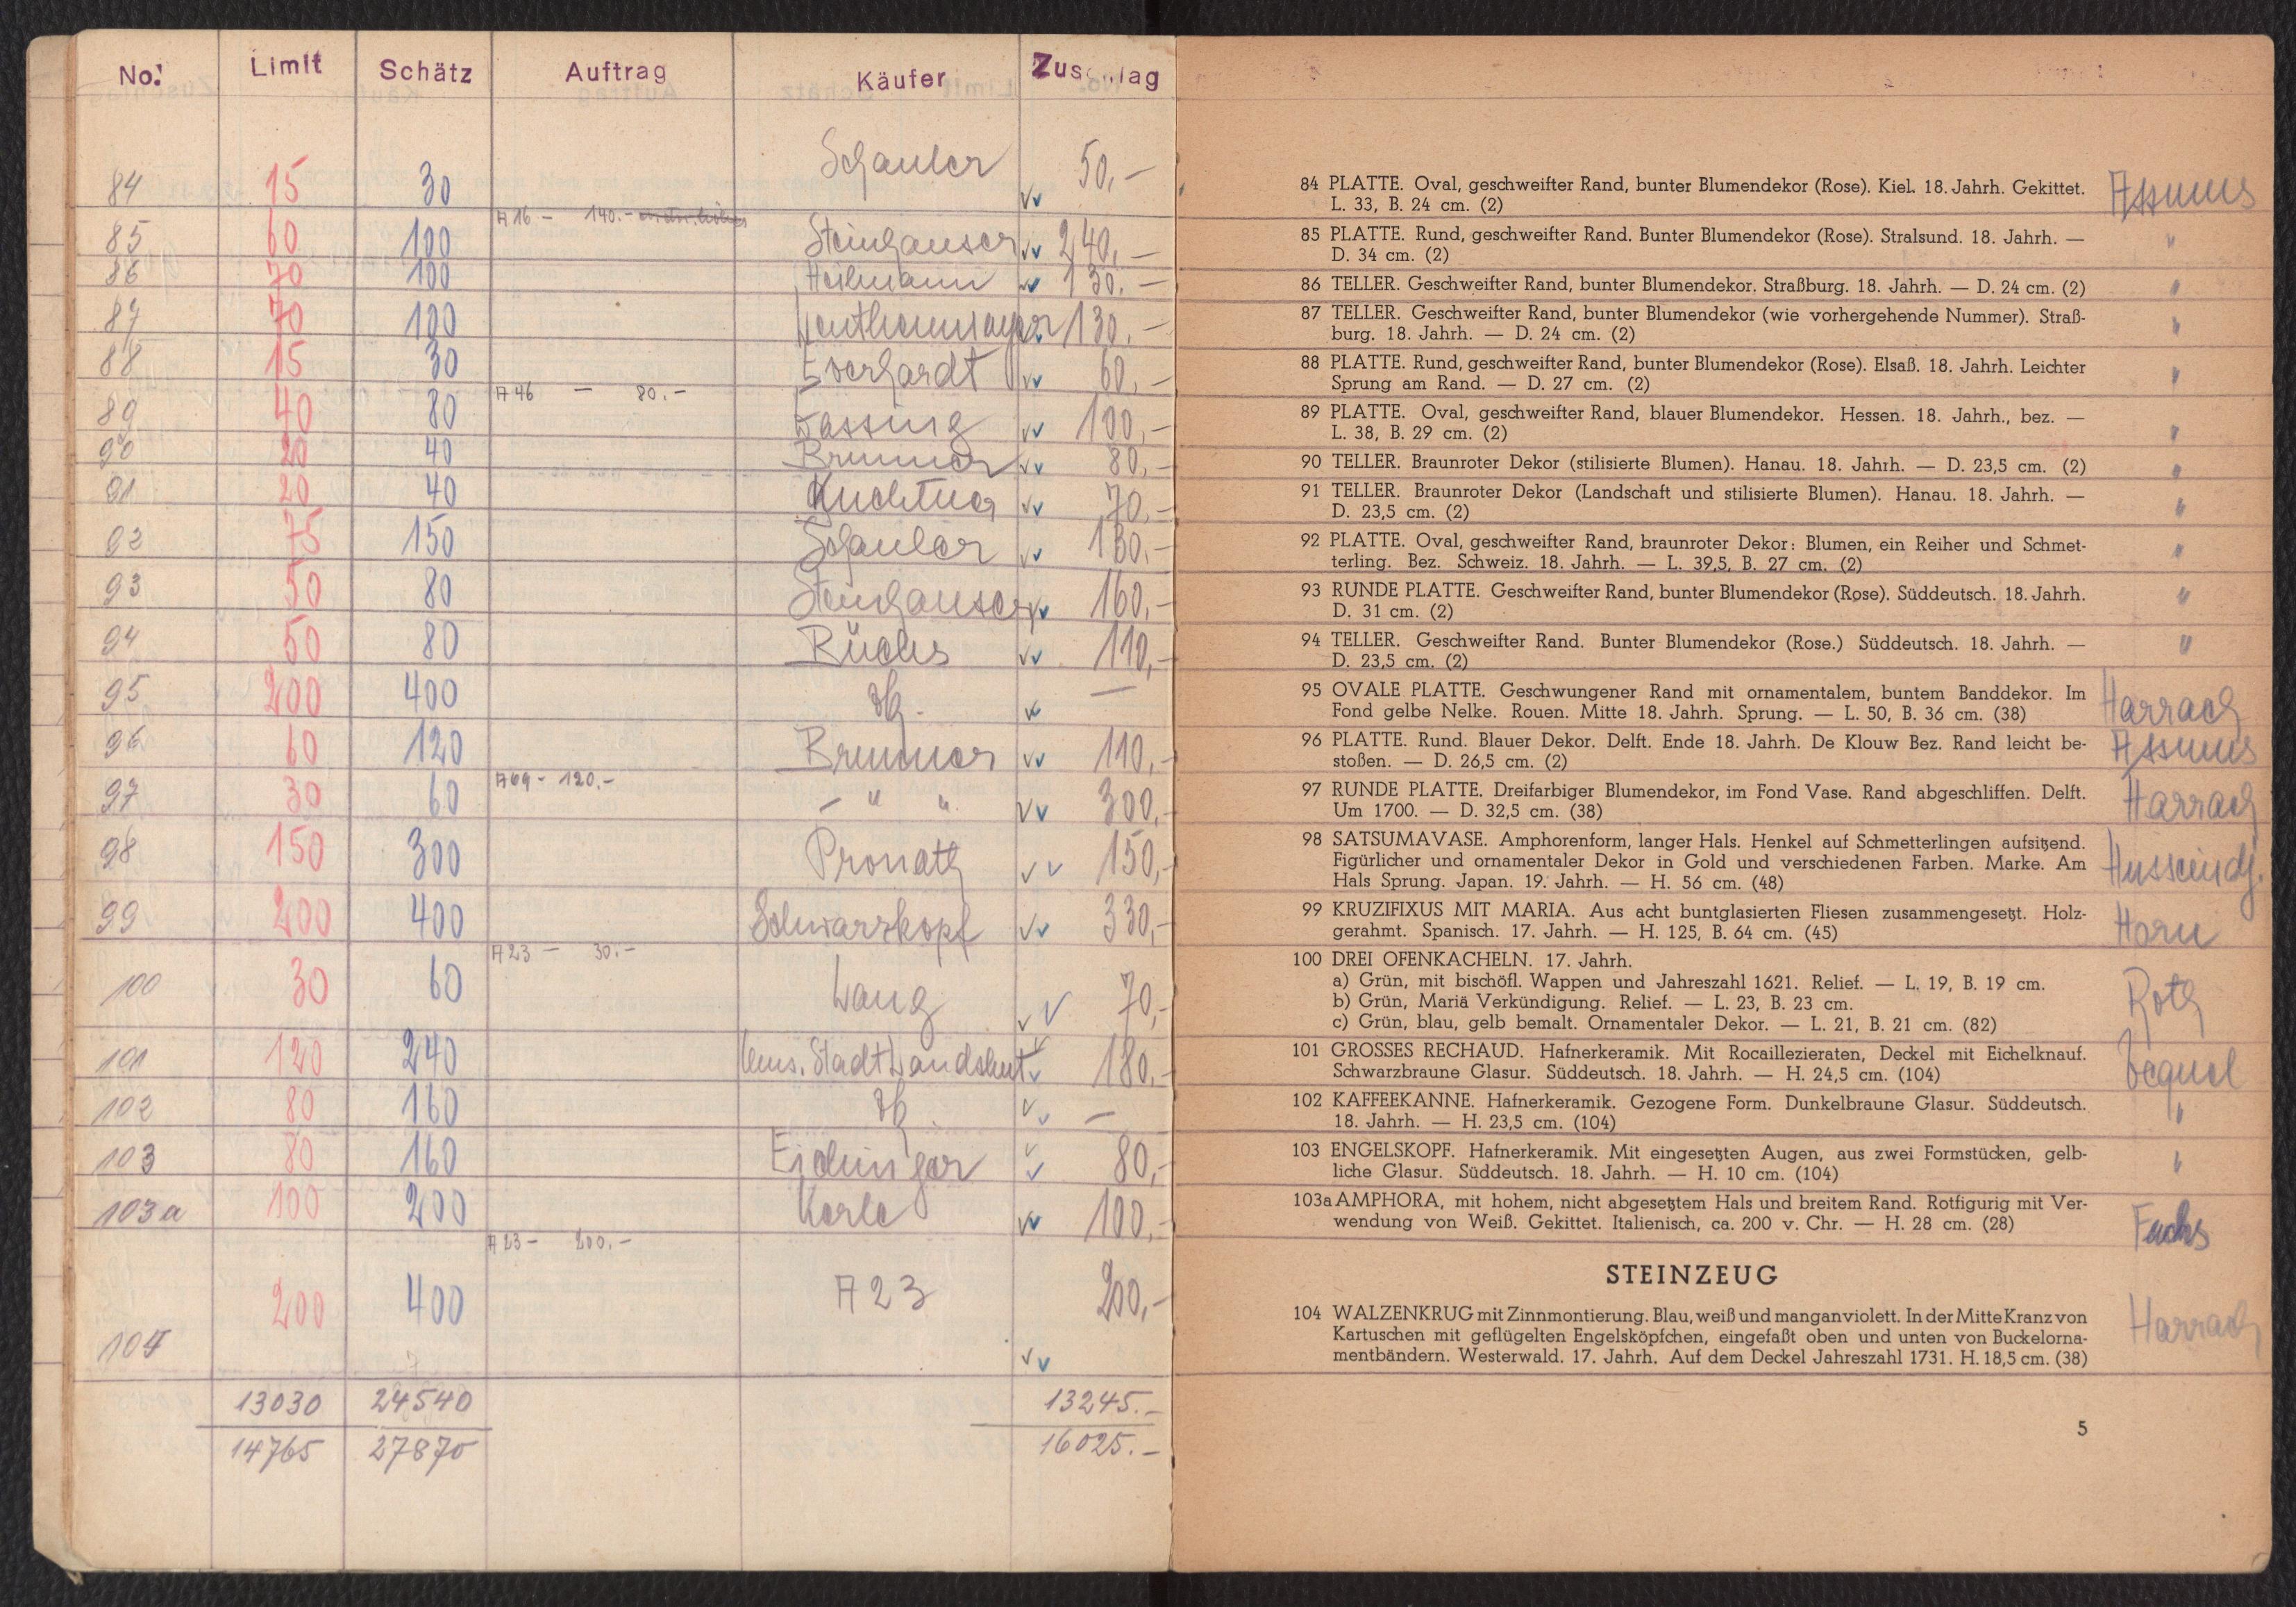 No. Limit Schätz Auftrag Käufer Zuschlag
84 15 30 Schauler 50,-
A 16 - 140.-
85 60 100 Steinhauser 240,-
86 70 100 Heilmann 130,-
87 70 100 130,-
88 15 30 Everhardt 60,-
A 46 - 80.-
89 40 80 Lassing 100,-
90 20 40 Brunner 80,-
91 20 40 70,-
92 75 150 Schauler 130,-
93 50 80 Steinhauser 160,-
94 50 80 110,-
95 200 400 —
96 60 120 Brunner 110,-
A 69 - 120.-
97 30 60 - " " 300,-
98 150 300 Pronath 150,-
99 200 400 Schwarzkopf 330,-
A 23 - 30.-
100 30 60 Lang 70,-
101 120 240 Mus. Stadt Landshut 180,-
102 80 160 —
103 80 160 Eichinger 80,-
103a 100 200 Karle 100,-
A 23 - 200.-
104 200 400 A 23 200,-
13030 24540 13245.-
14765 27870 16025.-
84 PLATTE. Oval, geschweifter Rand, bunter Blumendekor (Rose). Kiel. 18. Jahrh. Gekittet. Assmus
L. 33, B. 24 cm. (2)
85 PLATTE. Rund, geschweifter Rand. Bunter Blumendekor (Rose). Stralsund. 18. Jahrh. — "
D. 34 cm. (2)
86 TELLER. Geschweifter Rand, bunter Blumendekor. Straßburg. 18. Jahrh. — D. 24 cm. (2) "
87 TELLER. Geschweifter Rand, bunter Blumendekor (wie vorhergehende Nummer). Straß- "
burg. 18. Jahrh. — D. 24 cm. (2)
88 PLATTE. Rund, geschweifter Rand, bunter Blumendekor (Rose). Elsaß. 18. Jahrh. Leichter "
Sprung am Rand. — D. 27 cm. (2)
89 PLATTE. Oval, geschweifter Rand, blauer Blumendekor. Hessen. 18. Jahrh., bez. —
L. 38, B. 29 cm. (2) "
90 TELLER. Braunroter Dekor (stilisierte Blumen). Hanau. 18. Jahrh. — D. 23,5 cm. (2) "
91 TELLER. Braunroter Dekor (Landschaft und stilisierte Blumen). Hanau. 18. Jahrh. —
D. 23,5 cm. (2) "
92 PLATTE. Oval, geschweifter Rand, braunroter Dekor: Blumen, ein Reiher und Schmet- "
terling. Bez. Schweiz. 18. Jahrh. — L. 39,5, B. 27 cm. (2)
93 RUNDE PLATTE. Geschweifter Rand, bunter Blumendekor (Rose). Süddeutsch. 18. Jahrh. "
D. 31 cm. (2)
94 TELLER. Geschweifter Rand. Bunter Blumendekor (Rose.) Süddeutsch. 18. Jahrh. — "
D. 23,5 cm. (2)
95 OVALE PLATTE. Geschwungener Rand mit ornamentalem, buntem Banddekor. Im Harrach
Fond gelbe Nelke. Rouen. Mitte 18. Jahrh. Sprung. — L. 50, B. 36 cm. (38)
96 PLATTE. Rund. Blauer Dekor. Delft. Ende 18. Jahrh. De Klouw Bez. Rand leicht be- Assmus
stoßen. — D. 26,5 cm. (2)
97 RUNDE PLATTE. Dreifarbiger Blumendekor, im Fond Vase. Rand abgeschliffen. Delft. Harrach
Um 1700. — D. 32,5 cm. (38)
98 SATSUMAVASE. Amphorenform, langer Hals. Henkel auf Schmetterlingen aufsitzend.
Figürlicher und ornamentaler Dekor in Gold und verschiedenen Farben. Marke. Am
Hals Sprung. Japan. 19. Jahrh. — H. 56 cm. (48)
99 KRUZIFIXUS MIT MARIA. Aus acht buntglasierten Fliesen zusammengesetzt. Holz- Horn
gerahmt. Spanisch. 17. Jahrh. — H. 125, B. 64 cm. (45)
100 DREI OFENKACHELN. 17. Jahrh.
a) Grün, mit bischöfl. Wappen und Jahreszahl 1621. Relief. — L. 19, B. 19 cm. Roth
b) Grün, Mariä Verkündigung. Relief. — L. 23, B. 23 cm.
c) Grün, blau, gelb bemalt. Ornamentaler Dekor. — L. 21, B. 21 cm. (82)
101 GROSSES RECHAUD. Hafnerkeramik. Mit Rocaillezieraten, Deckel mit Eichelknauf.
Schwarzbraune Glasur. Süddeutsch. 18. Jahrh. — H. 24,5 cm. (104)
102 KAFFEEKANNE. Hafnerkeramik. Gezogene Form. Dunkelbraune Glasur. Süddeutsch. "
18. Jahrh. — H. 23,5 cm. (104)
103 ENGELSKOPF. Hafnerkeramik. Mit eingesetzten Augen, aus zwei Formstücken, gelb- "
liche Glasur. Süddeutsch. 18. Jahrh. — H. 10 cm. (104)
103a AMPHORA, mit hohem, nicht abgesetztem Hals und breitem Rand. Rotfigurig mit Ver- Fuchs
wendung von Weiß. Gekittet. Italienisch, ca. 200 v. Chr. — H. 28 cm. (28)
STEINZEUG
104 WALZENKRUG mit Zinnmontierung. Blau, weiß und manganviolett. In der Mitte Kranz von Harrach
Kartuschen mit geflügelten Engelsköpfchen, eingefaßt oben und unten von Buckelorna-
mentbändern. Westerwald. 17. Jahrh. Auf dem Deckel Jahreszahl 1731. H. 18,5 cm. (38)
5